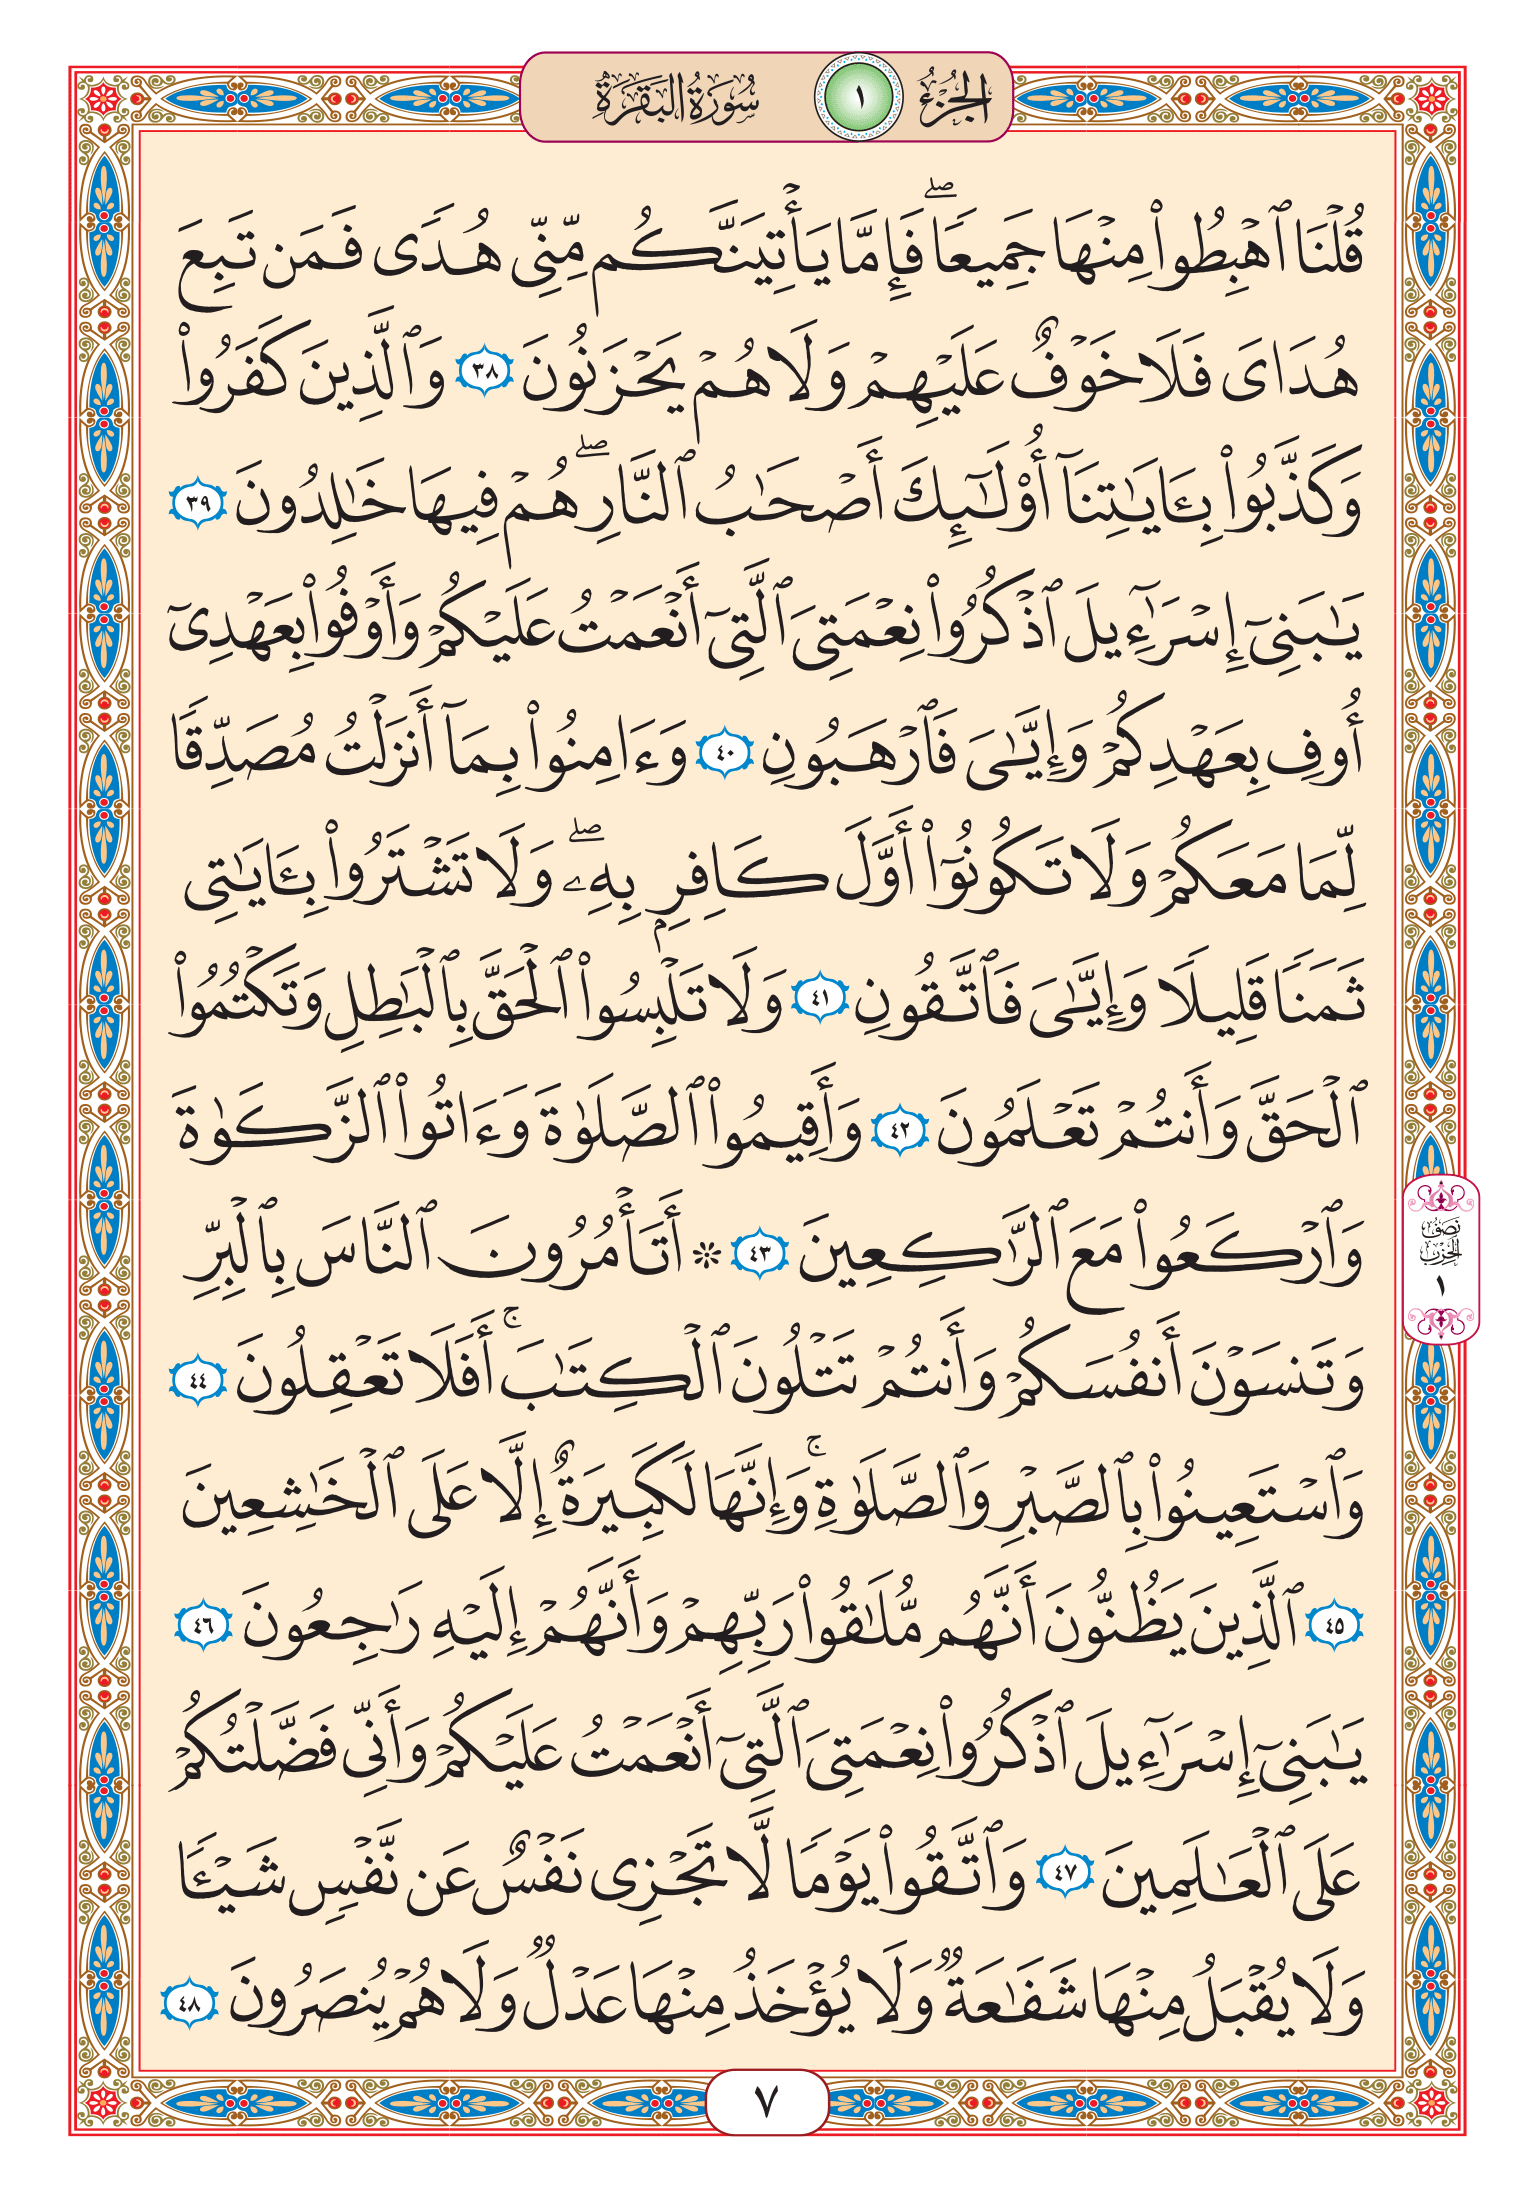 الجزء ١ سورة البقرة
قُلْنَا ٱهْبِطُوا۟ مِنْهَا جَمِيعًۭا ۖ فَإِمَّا يَأْتِيَنَّكُم مِّنِّى هُدًۭى فَمَن تَبِعَ
هُدَاىَ فَلَا خَوْفٌ عَلَيْهِمْ وَلَا هُمْ يَحْزَنُونَ ٣٨ وَٱلَّذِينَ كَفَرُوا۟
وَكَذَّبُوا۟ بِـَٔايَـٰتِنَآ أُو۟لَـٰٓئِكَ أَصْحَـٰبُ ٱلنَّارِ ۖ هُمْ فِيهَا خَـٰلِدُونَ ٣٩
يَـٰبَنِىٓ إِسْرَٰٓءِيلَ ٱذْكُرُوا۟ نِعْمَتِىَ ٱلَّتِىٓ أَنْعَمْتُ عَلَيْكُمْ وَأَوْفُوا۟ بِعَهْدِىٓ
أُوفِ بِعَهْدِكُمْ وَإِيَّـٰىَ فَٱرْهَبُونِ ٤٠ وَءَامِنُوا۟ بِمَآ أَنزَلْتُ مُصَدِّقًۭا
لِّمَا مَعَكُمْ وَلَا تَكُونُوٓا۟ أَوَّلَ كَافِرٍۭ بِهِۦ ۖ وَلَا تَشْتَرُوا۟ بِـَٔايَـٰتِى
ثَمَنًۭا قَلِيلًۭا وَإِيَّـٰىَ فَٱتَّقُونِ ٤١ وَلَا تَلْبِسُوا۟ ٱلْحَقَّ بِٱلْبَـٰطِلِ وَتَكْتُمُوا۟
ٱلْحَقَّ وَأَنتُمْ تَعْلَمُونَ ٤٢ وَأَقِيمُوا۟ ٱلصَّلَوٰةَ وَءَاتُوا۟ ٱلزَّكَوٰةَ
وَٱرْكَعُوا۟ مَعَ ٱلرَّٰكِعِينَ ٤٣ ۞ أَتَأْمُرُونَ ٱلنَّاسَ بِٱلْبِرِّ
نصف الحزب ١
وَتَنسَوْنَ أَنفُسَكُمْ وَأَنتُمْ تَتْلُونَ ٱلْكِتَـٰبَ ۚ أَفَلَا تَعْقِلُونَ ٤٤
وَٱسْتَعِينُوا۟ بِٱلصَّبْرِ وَٱلصَّلَوٰةِ ۚ وَإِنَّهَا لَكَبِيرَةٌ إِلَّا عَلَى ٱلْخَـٰشِعِينَ
٤٥ ٱلَّذِينَ يَظُنُّونَ أَنَّهُم مُّلَـٰقُوا۟ رَبِّهِمْ وَأَنَّهُمْ إِلَيْهِ رَٰجِعُونَ ٤٦
يَـٰبَنِىٓ إِسْرَٰٓءِيلَ ٱذْكُرُوا۟ نِعْمَتِىَ ٱلَّتِىٓ أَنْعَمْتُ عَلَيْكُمْ وَأَنِّى فَضَّلْتُكُمْ
عَلَى ٱلْعَـٰلَمِينَ ٤٧ وَٱتَّقُوا۟ يَوْمًۭا لَّا تَجْزِى نَفْسٌ عَن نَّفْسٍۢ شَيْـًۭٔا
وَلَا يُقْبَلُ مِنْهَا شَفَـٰعَةٌۭ وَلَا يُؤْخَذُ مِنْهَا عَدْلٌۭ وَلَا هُمْ يُنصَرُونَ ٤٨
٧